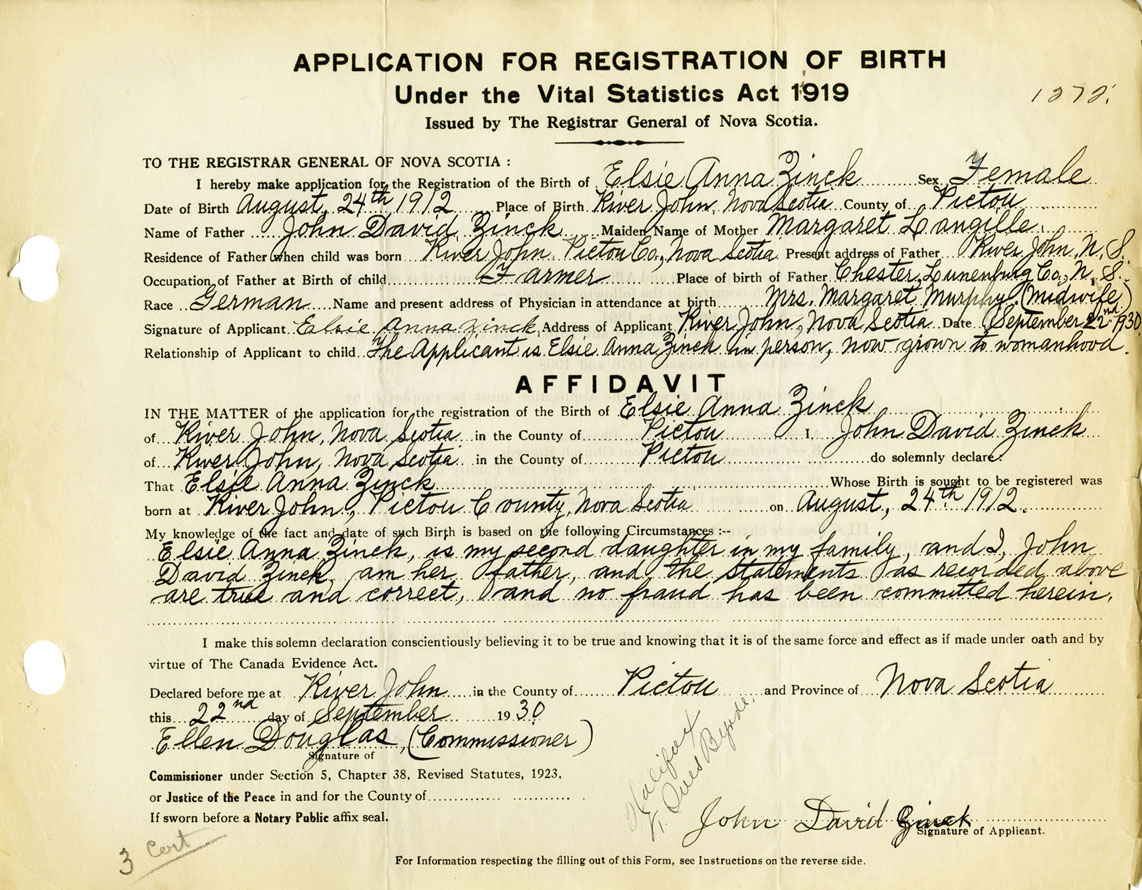 APPLICATION FOR REGISTRATION OF BIRTH
Under the Vital Statistics Act 1919
1272.
Issued by The Registrar General of Nova Scotia.
TO THE REGISTRAR GENERAL OF NOVA SCOTIA :
I hereby make application for the Registration of the Birth of Elsie Anna Zinck Sex Female
Date of Birth August, 24th 1912 Place of Birth River John, Nova Scotia County of Pictou
Name of Father John David Zinck Maiden Name of Mother Margaret Langille.
Residence of Father when child was born River John, Pictou Co., Nova Scotia Present address of Father River John, N. S.
Occupation of Father at Birth of child Farmer Place of birth of Father Chester, Lunenburg Co., N. S.
Race German Name and present address of Physician in attendance at birth Mrs. Margaret Murphy. (midwife)
Signature of Applicant Elsie Anna Zinck Address of Applicant River John, Nova Scotia Date September 22nd 1930
Relationship of Applicant to child The Applicant is Elsie Anna Zinck in person, now grown to womanhood.
AFFIDAVIT
IN THE MATTER of the application for the registration of the Birth of Elsie Anna Zinck
of River John, Nova Scotia in the County of Pictou I, John David Zinck
of River John, Nova Scotia in the County of Pictou do solemnly declare:
That Elsie Anna Zinck Whose Birth is sought to be registered was
born at River John, Pictou County, Nova Scotia on August, 24th 1912.
My knowledge of the fact and date of such Birth is based on the following Circumstances :--
Elsie Anna Zinck, is my second daughter in my family, and I, John
David Zinck, am her father, and the statements as recorded above
are true and correct, and no fraud has been committed herein.
I make this solemn declaration conscientiously believing it to be true and knowing that it is of the same force and effect as if made under oath and by
virtue of The Canada Evidence Act.
Declared before me at River John in the County of Pictou and Province of Nova Scotia
this 22nd day of September 1930
Ellen Douglas, (Commissioner)
Signature of
Commissioner under Section 5, Chapter 38, Revised Statutes, 1923,
or Justice of the Peace in and for the County of
If sworn before a Notary Public affix seal.
Halifax
John David Zinck
Signature of Applicant.
3 Cert
For Information respecting the filling out of this Form, see Instructions on the reverse side.